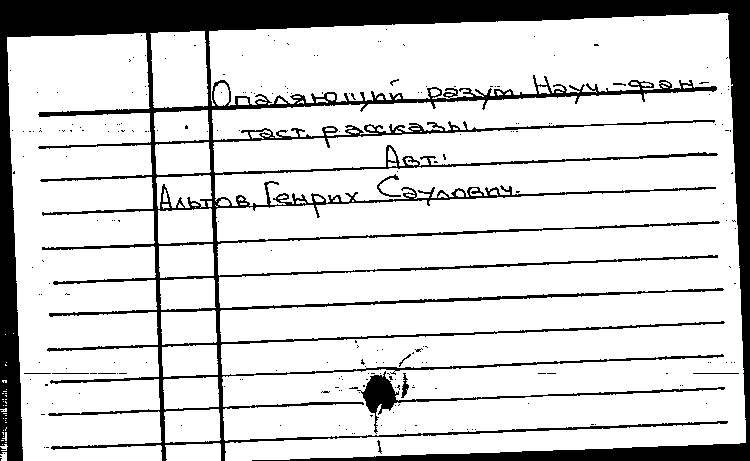 Опаляющий разум. Науч.-фан-
таст. рассказы.
Авт.:
Альтов, Генрих Саулович.